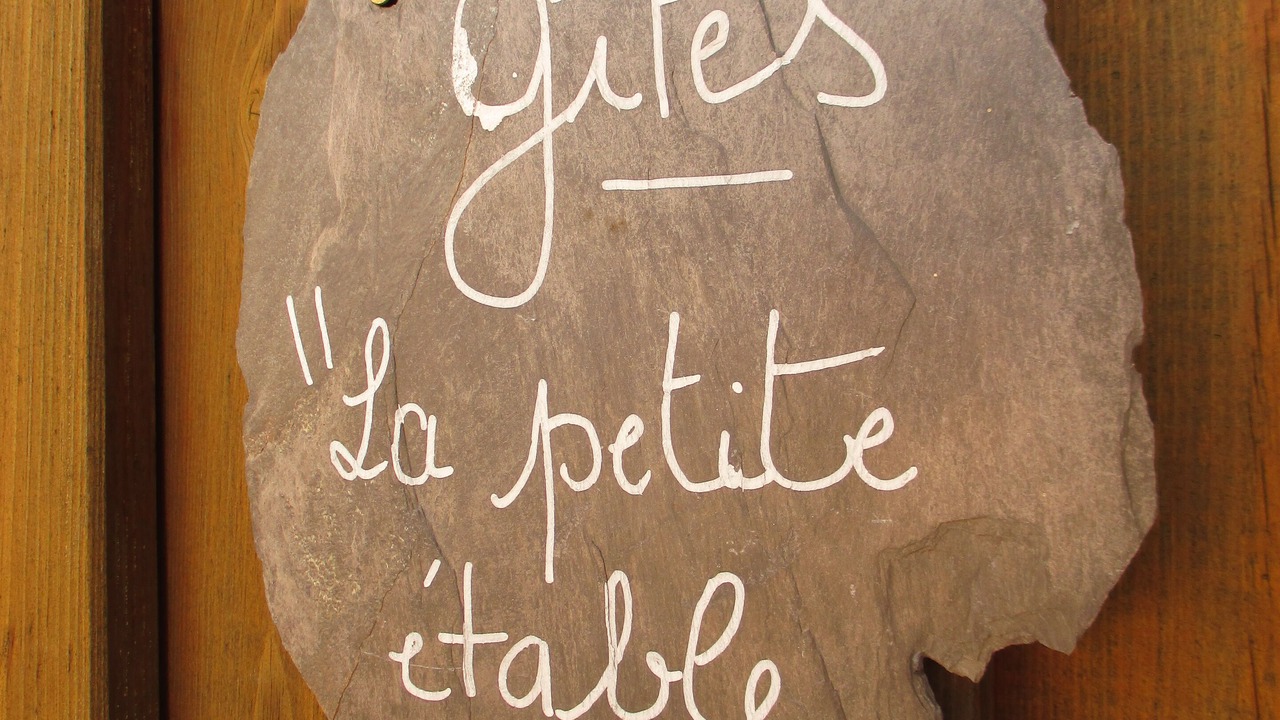 gîtes
"La petite
étable